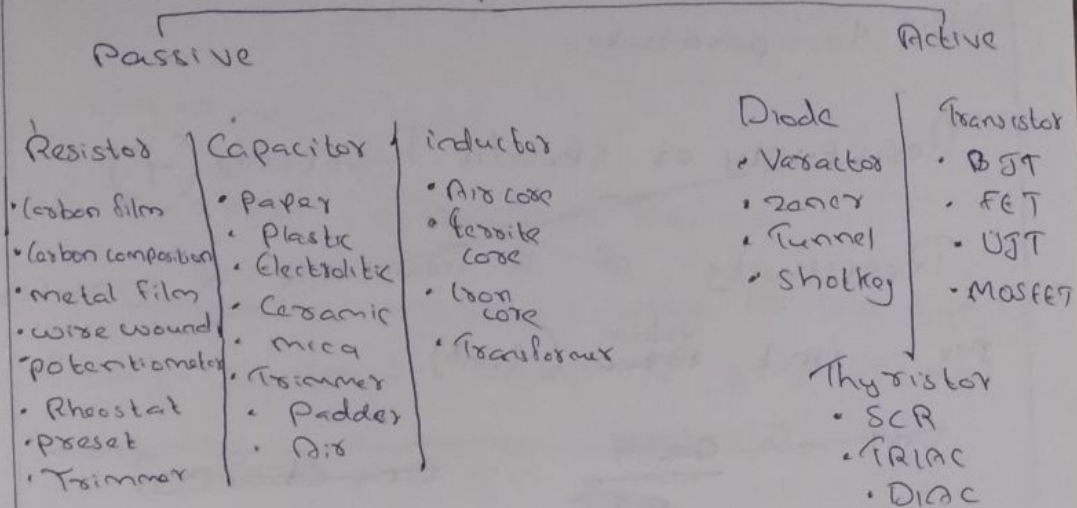 Passive
Active
Resistor
• Carbon film
• Carbon composition
• metal film
• wire wound
• potentiometer
• Rheostat
• preset
• Trimmer
Capacitor
• paper
• Plastic
• Electrolitic
• Ceramic
• mica
• Trimmer
• Padder
• Air
inductor
• Air core
• ferrite
core
• Iron
core
• Transformer
Diode
• Varactor
• zoner
• Tunnel
• Shotkey
Transistor
• BJT
• FET
• UJT
• MOSFET
Thyristor
• SCR
• TRIAC
• DIAC